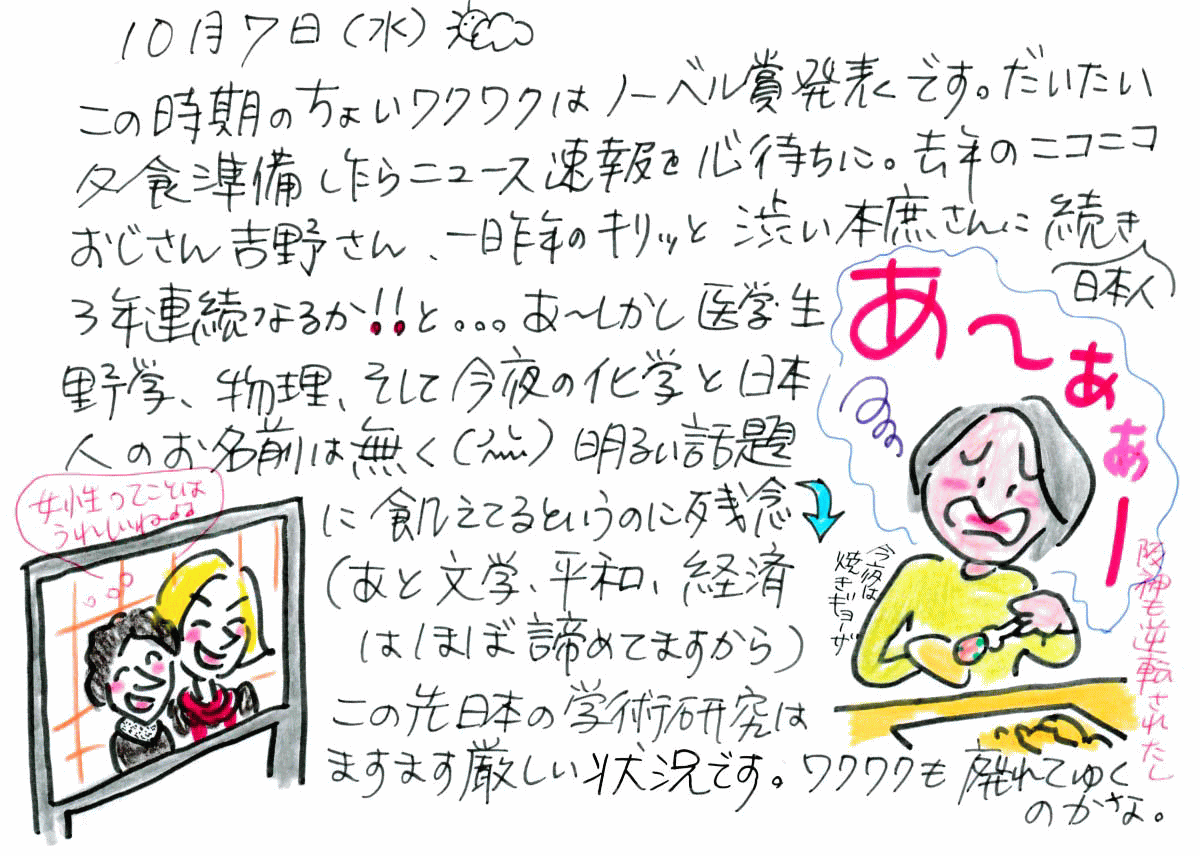 10月7日(水)
この時期のちょいワクワクはノーベル賞発表です。だいたい
夕食準備し乍らニュース速報を心待ちに。去年のニコニコ
おじさん吉野さん、一昨年のキリッと渋い本庶さんに続き
日本人
3年連続なるか!!と。。。あ〜しかし医学生
野学、物理、そして今夜の化学と日本
人のお名前は無く( )明るい話題
に飢えてるというのに残念
(あと文学、平和、経済
はほぼ諦めてますから)
この先日本の学術研究は
ますます厳しい状況です。ワクワクも廃れてゆく
のかさな。
あ〜ぁぁー
今夜は
焼きギョーザ
阪神も逆転されたし
女性ってことは
うれしいねぇ